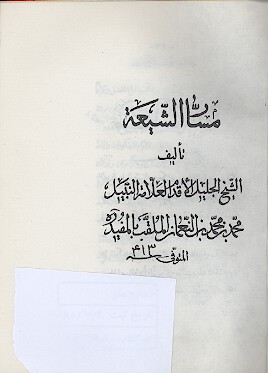 مسارّ الشّيعة
تأليف
الشيخ الجليل الأقدم العلامة النبيل
محمد بن محمد بن النعمان الملقب بالمفيد ره
المتوفى ٤١٣